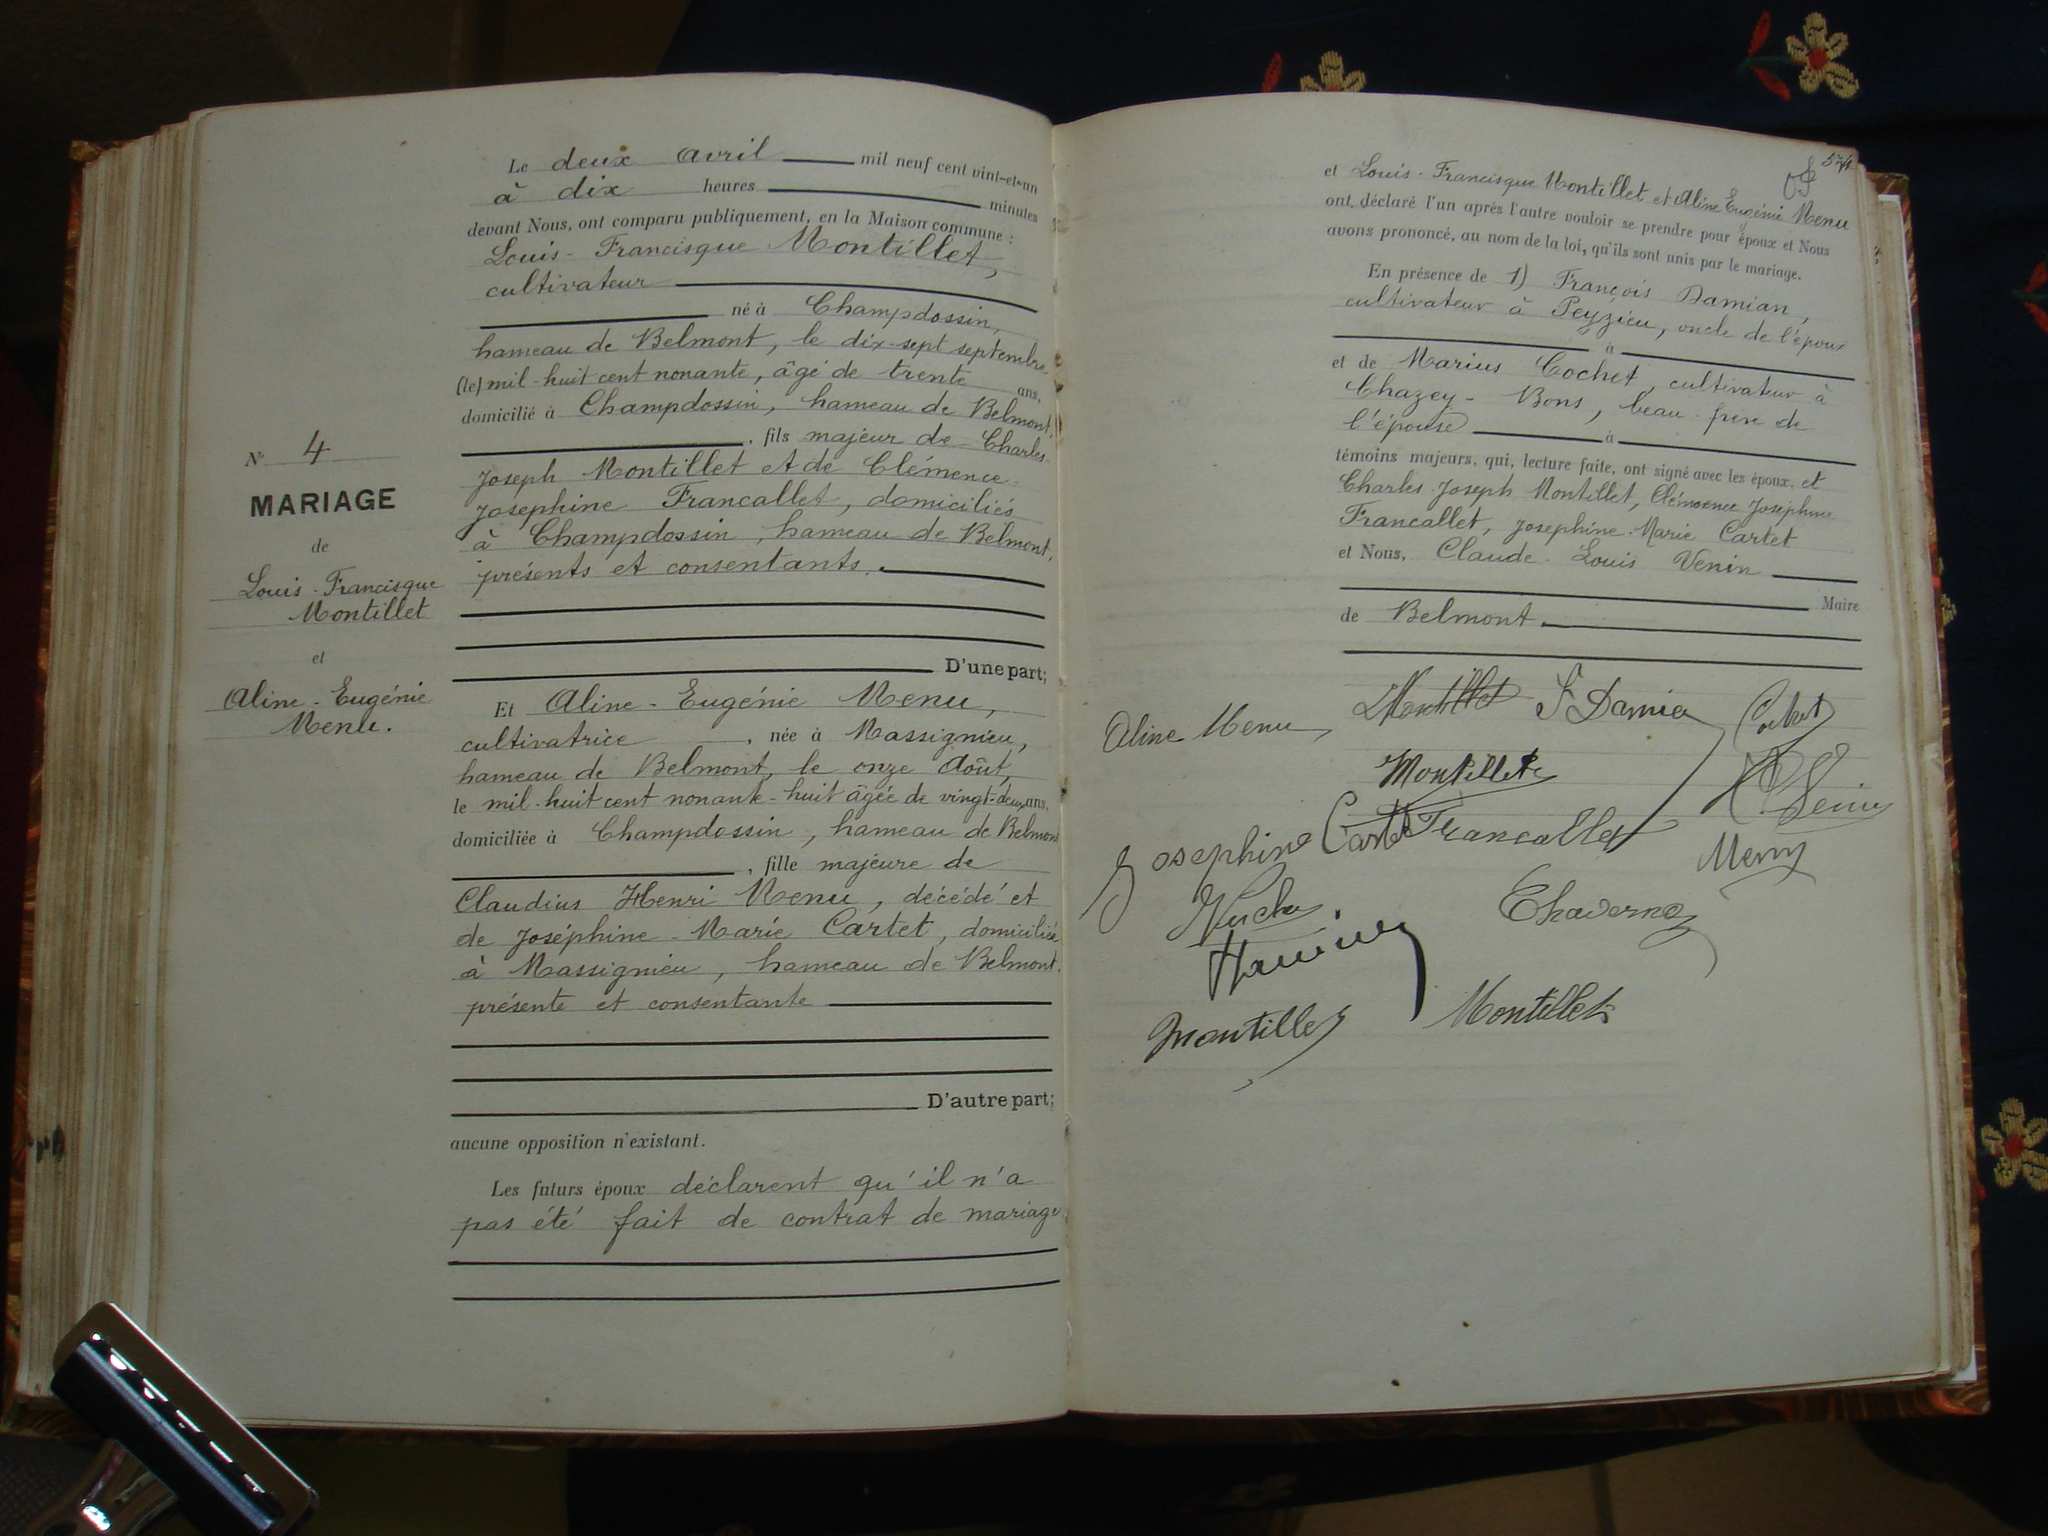 Le deux avril mil neuf cent vint-et-un
à dix heures minutes
devant Nous, ont comparu publiquement, en la Maison commune :
Louis-Francisque Montillet,
cultivateur
né à Champdossin,
hameau de Belmont, le dix-sept septembre
(le) mil-huit cent nonante, âgé de trente ans,
domicilié à Champdossin, hameau de Belmont,
, fils majeur de Charles-
Joseph Montillet et de Clémence-
Josephine Francallet, domiciliés
à Champdossin, hameau de Belmont,
présents et consentants.
D'une part;
Et Aline-Eugénie Menu,
cultivatrice , née à Massignieu,
hameau de Belmont, le onze Août,
le mil-huit cent nonante-huit âgée de vingt-deux ans,
domiciliée à Champdossin, hameau de Belmont
, fille majeure de
Claudius Henri Menu, décédé et
de Joséphine-Marie Cartet, domiciliée
à Massignieu, hameau de Belmont.
présente et consentante
D'autre part;
aucune opposition n'existant.
Les futurs époux déclarent qu'il n'a
pas été fait de contrat de mariage
N° 4
MARIAGE
de
Louis-Francisque
Montillet
et
Aline-Eugénie
Menu.
et Louis-Francisque Montillet et Aline Eugénie Menu
ont déclaré l'un après l'autre vouloir se prendre pour époux et Nous
avons prononcé, au nom de la loi, qu'ils sont unis par le mariage.
En présence de 1) François Damian,
cultivateur à Peyzieu, oncle de l'époux
à
et de Marius Cochet, cultivateur à
Chazey-Bons, beau-frere de
l'épouse à
témoins majeurs, qui, lecture faite, ont signé avec les époux, et
Charles-Joseph Montillet, Clémence Joséphine
Francallet, Josephine-Marie Cartet
et Nous, Claude-Louis Venin
Maire
de Belmont.
Aline Menu, Montillet F Damian Cochet
Montillet Venin
Josephine Cartet Francallet Menu
Montillet Montillet